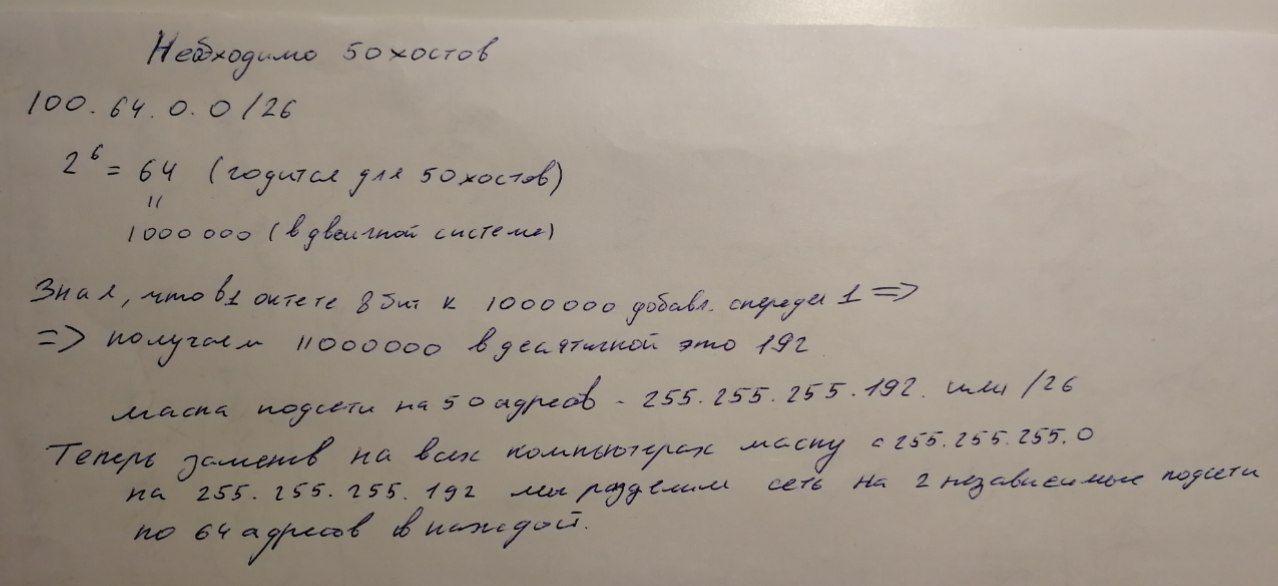 Необходимо 50 хостов
100.64.0.0/26
2⁶ = 64 (годится для 50 хостов)
"
1000000 (в двоичной системе)
Зная, что в 1 октете 8 бит к 1000000 добавл. спереди 1 =>
=> получаем 11000000 в десятичной это 192
маска подсети на 50 адресов - 255.255.255.192. или /26
Теперь заменив на всех компьютерах маску с 255.255.255.0
на 255.255.255.192 мы разделим сеть на 2 независимые подсети
по 64 адресов в каждой.